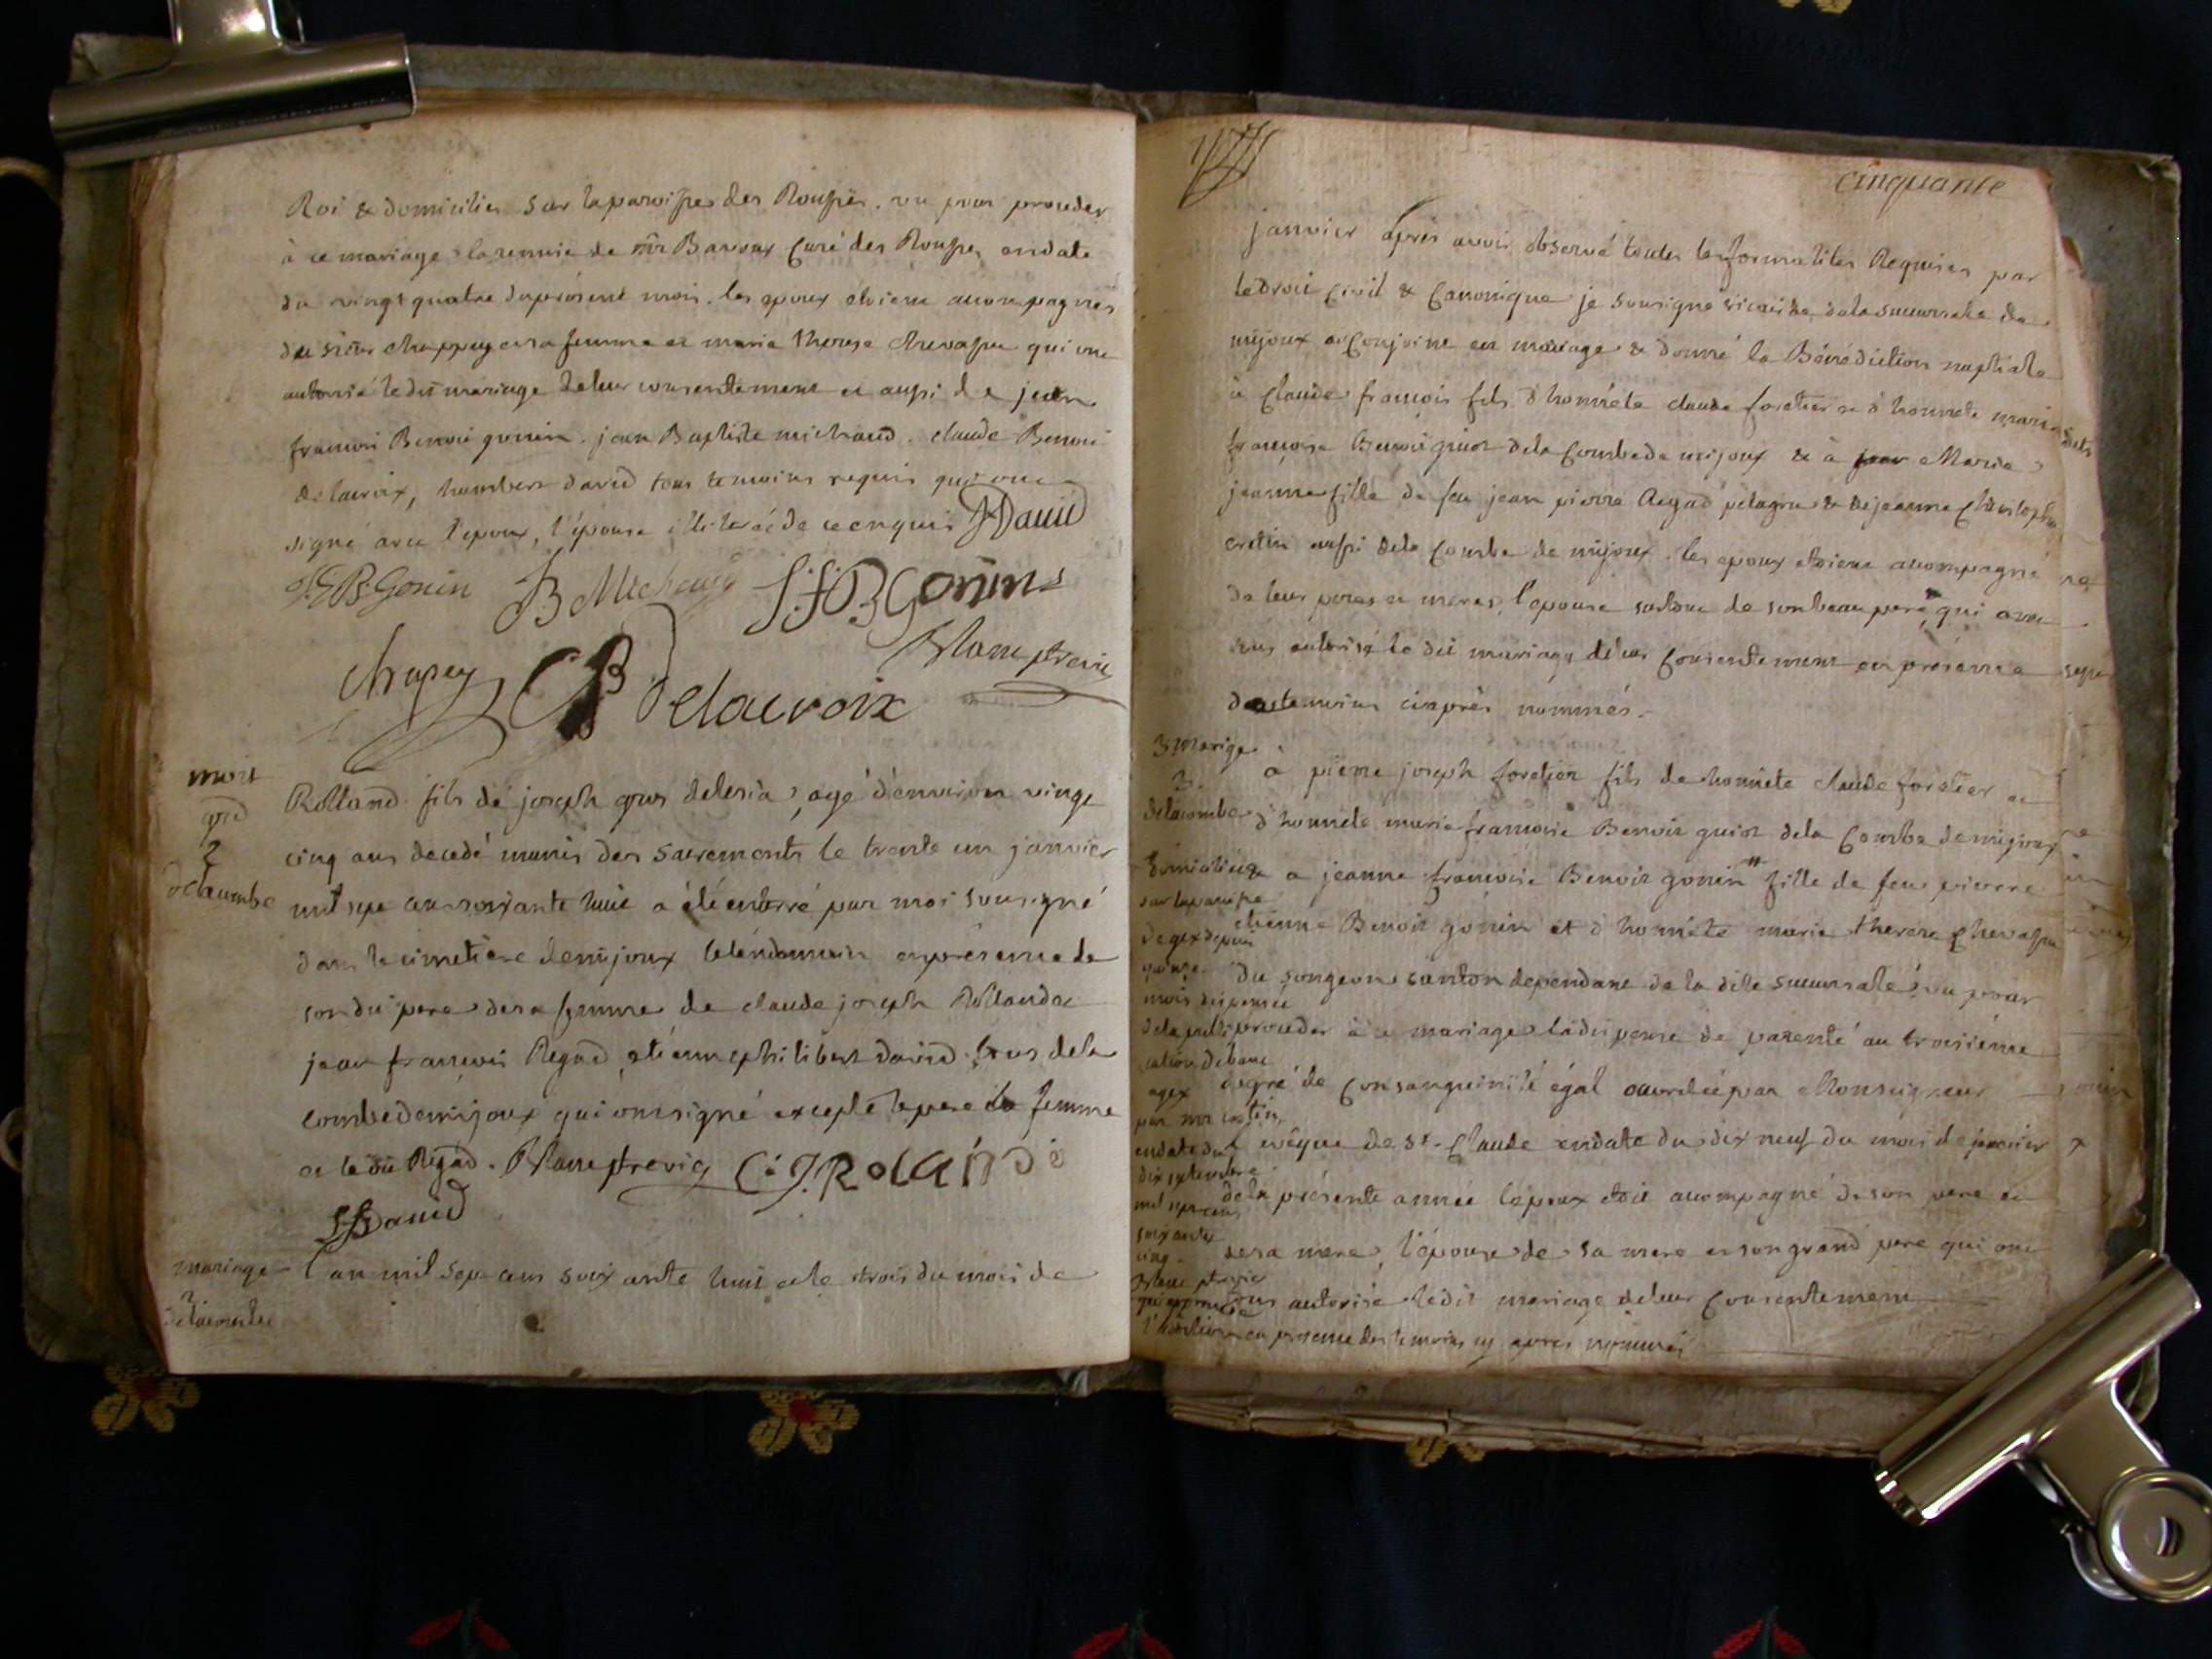 Roi & domiciliés sur la paroisse des Rousses. vu pour proceder
à ce mariage la remise de mr Baroux Curé des Rousses en date
du vingt quatre du présent mois. les epoux etoient accompagnés
du sieur chappuy et sa femme et marie therese chevassu qui ont
autorisé le dit mariage de leur consentement et aussi de jean
francois Benoit gonin. jean Baptiste michaud. claude Benoit
delacroix, humbert david tous temoins requis qui ont
signé avec l'epoux, l'épouse illiterée de ce enquis JHDavid
J.F.B.Gonin JB Michaud J.F.B Gonin
Blanc ptre vic
chapuy CB delacroix
mort
gd
2
delacombe
Rolland fils de joseph gros delesia, agé d'environ vingt
cinq ans decedé munis des sacrements le trente un janvier
mil sept cent soixante huit a été enterré par moi sousigné
dans le cimetiere de mijoux le lendemain en présence de
son dit pere de sa femme de claude joseph Rolland et
jean francois Regad, etienne philibert david tous de la
combe de mijoux qui ont signé excepté le pere la femme
et le dit Regad. Blanc ptre vic C.J.Roland
David
mariage
2
delacombe
l'an mil sept cent soixante huit et le trois du mois de
cinquante
janvier après avoir observé toutes les formalités Requises par
le droit Civil & Canonique je sousigné vicaire de la succursale de
mijoux ai Conjoint en mariage & donné la Bénédiction nuptiale
à Claude francois fils d'honnête claude foretier et d'honnete marie
francoise Benoit guiot de la Combe de mijoux & à Marie
jeanne fille de feu jean pierre Regad pelagru & de jeanne Christophe
cretin aussi de la Combe de mijoux. les epoux etoient accompagné
de leur peres et meres, l'epouse surtout de son beau pere, qui avec
eux autorisé le dit mariage de leur Consentement en présence
des temoins ci après nommés.
3 mariage
3.
delacombe
à pierre joseph foretier fils de honnête claude foretier et
d'honnete marie francoise Benoit guiot de la Combe de mijoux
& a jeanne francoise Benoit gonin # fille de feu pierre
etienne Benoit gonin et d'honnéte marie therese Chevassu
du songeon canton dependant de la dite succursale. vu pour
proceder à ce mariage la dispense de parenté au troisiéme
degré de Consanguinité égal accordée par Monseigneur
l'evêque de St. Claude en date du dix neuf du mois de janvier
de la présente année l'epoux etoit accompagné de son pere et
de sa mere, l'épouse de sa mere et son grand pere qui ont
tous autorisé ledit mariage de leur Consentement
en presence des temoins cy apres nommés
# domiciliée
sur la paroisse
de gex depuis
quinze
mois dispensée
de la publi
cation de bans
a gex
par mr
en date du
dix septembre
mil sept cent
soixante
cinq
Blanc ptre vic
qui approuve
l'addition